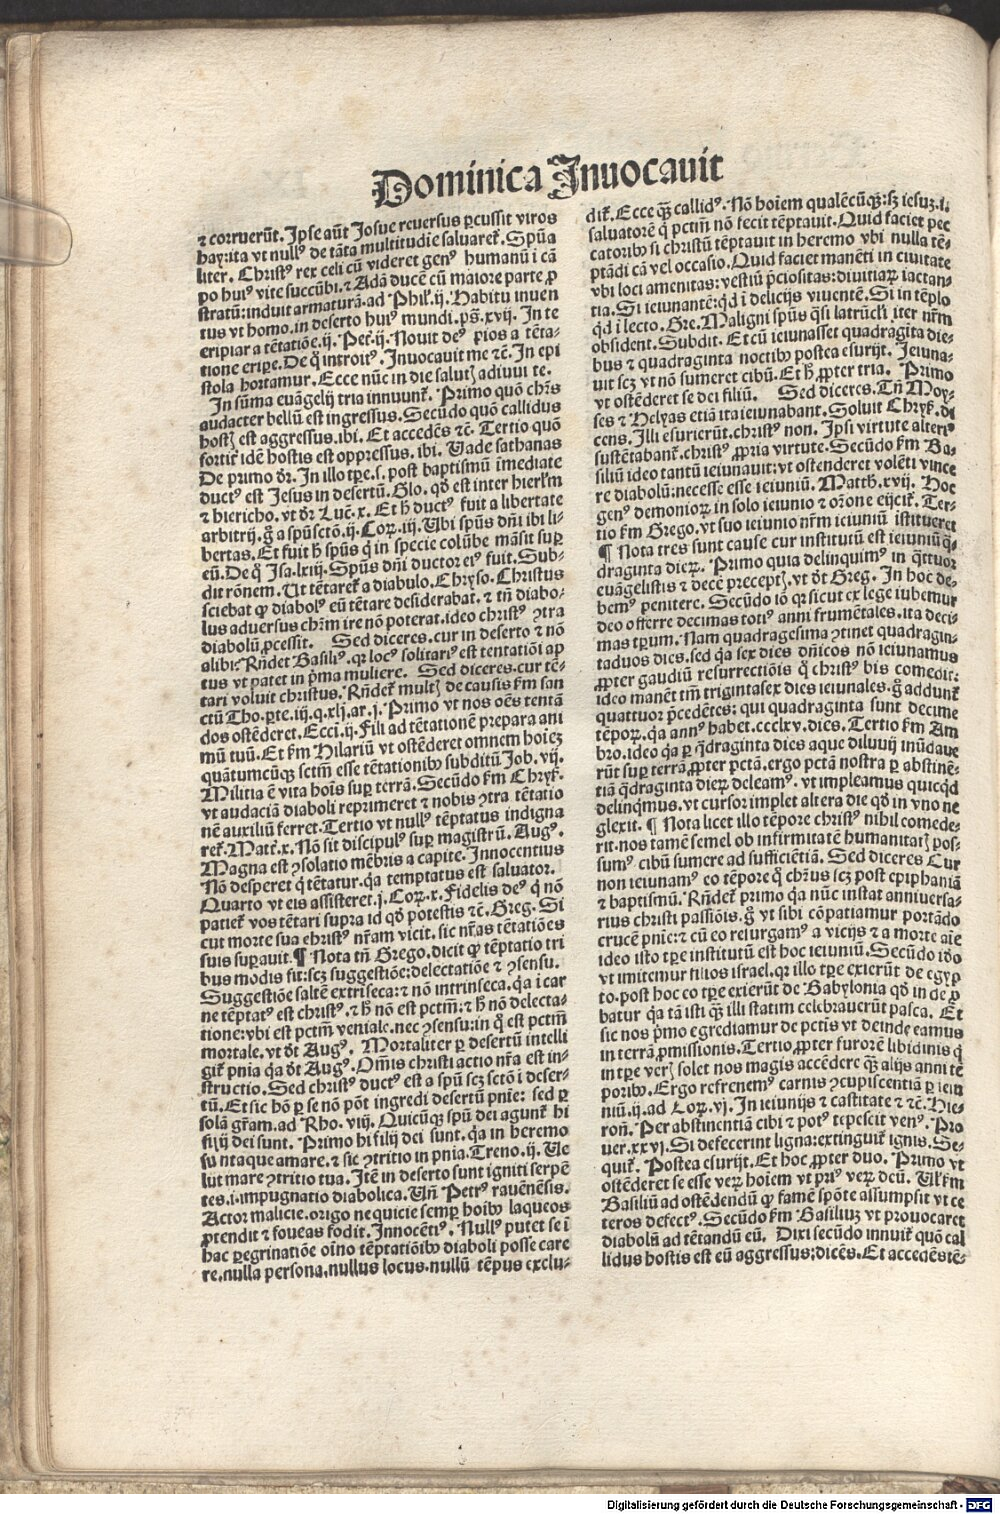 Dominica Inuocauit
⁊ corruerūt. Ip̄se aūt Josue reuersus ꝑcussit viros
hay: ita vt null⁹ de tāta multitudīe saluaret᷑. Sp̄ua
liter. Christ⁹ rex celi cū videret gen⁹ humanū i cā
po hui⁹ vite succūbi. ⁊ Adā ducē cū maiore parte ꝓ
stratū: induit armaturā. ad Phil᷑. ij. Habitu inuen
tus vt homo. in deserto hui⁹ mundi. ps̄. xvij. In te
eripiar a tētatiōe. ij. Pet᷑. ij. Nouit de⁹ pios a tēta-
tione eriꝑe. De q̊ introit⁹. Inuocauit me ⁊c̄. In epi
stola hortamur. Ecce nūc in die saluꝭ adiuui te.
In sūma euāgelij tria innuunt᷑. Primo quō chr̄s
audacter bellū est ingressus. Secūdo quō callidus
hostꝭ est aggressus. ibi. Et accedēs ⁊c̄. Tertio quō
fortit᷑ idē hostis est oppressus. ibi. Uade sathanas
De primo dr̄. In illo tp̄e. s. post baptismū īmediate
duct⁹ est Jesus in desertū. Glo. qd̄ est inter hierl᷑m
⁊ hiericho. vt dr̄ Luc̄. x. Et h̄ duct⁹ fuit a libertate
arbitrij. g̊ a spū sctō. ij. Cor̄. iij. Ubi spūs dn̄i ibi li-
bertas. Et fuit h̄ spūs q̇ in specie colūbe māsit suꝑ
eū. De q̊ Isa. lxiij. Spūs dn̄i ductor ei⁹ fuit. Sub-
dit rōnem. Ut tētaret᷑ a diabulo. Chryso. Christus
sciebat ꝙ diabol⁹ eū tētare desiderabat. ⁊ tn̄ diabo-
lus aduersus chr̄m ire nō poterat. ideo christ⁹ ↄtra
diabolū ꝓcessit. Sed diceres. cur in deserto ⁊ nō
alibi: Rn̄det Basili⁹. qr loc⁹ solitari⁹ est tentatiōi ap
tus vt patet in p̄ma muliere. Sed diceres. cur tē-
tari voluit christus. Rn̄det᷑ multꝭ de causis km̄ san
ctū Tho. ꝑte. iij. q. xlj. ar. j. Primo vt nos oēs tentā
dos ostēderet. Ecci. ij. Fili ad tētationē prepara ani
mū tuū. Et km̄ Hilariū vt ostēderet omnem hoīez
quātumcūqꝫ sctm̄ esse tētationibꝰ subditū Job. vij.
Militia ē vita hoīs suꝑ terrā. Secūdo km̄ Chryś.
vt audaciā diaboli reprimeret ⁊ nobis ↄtra tētatio
nē auxiliū ferret. Tertio vt null⁹ tēptatus indigna
ret᷑. Matt̄. x. Nō sit discipul⁹ suꝑ magistrū. Aug⁹.
Magna est ↄsolatio mēbris a capite. Innocentius
Nō desperet q̇ tētatur. qa temptatus est saluator.
Quarto vt eis assisteret. j. Cor̄. x. Fidelis de⁹ q̇ nō
patiet᷑ vos tētari supra id qd̄ potestis ⁊c̄. Greg. Si
cut morte sua christ⁹ nr̄am vicit. sic nr̄as tētatiōes
suis suꝑauit. ¶ Nota tn̄ Grego. dicit ꝙ tēptatio tri
bus modis fit: scꝫ suggestiōe: delectatiōe ⁊ ↄsensu.
Suggestiōe saltē extriseca: ⁊ nō intrinseca. qa i car
ne tēptat⁹ est christ⁹. ⁊ h̄ nō est pctm̄: ⁊ h̄ nō delecta-
tione: vbi est pctm̄ veniale. nec ↄsensu: in q̊ est pctm̄
mortale. vt dt̄ Aug⁹. Mortaliter ꝑ desertū intelli
git᷑ pnīa qa dt̄ Aug⁹. Om̄is christi actio nr̄a est in-
structio. Sed christ⁹ duct⁹ est a spū scꝫ sctō i deser-
tū. Et sic hō ꝑ se nō pōt ingredi desertū pnīe: sed ꝑ
solā gr̄am. ad Rho. viij. Quicūqꝫ spū dei agunt᷑ hi
filij dei sunt. Primo hi filij dei sunt. qa in heremo
sunt aque amare. ⁊ sic ↄtritio in pnīa. Treno. ij. Ue
lut mare ↄtritio tua. Itē in deserto sunt igniti serpē
tes. i. impugnatio diabolica. Un̄ Petr⁹ rauēnēsis.
Actor malicie. origo nequicie semꝑ hoībꝰ laqueos
ꝓtendit ⁊ foueas fodit. Innocēt⁹. Null⁹ putet se i
hac ꝑegrinatiōe oīno tēptatiōibꝰ diaboli posse care
re. nulla persona. nullus locus. nullū tēpus exclu-
dit᷑. Ecce qꝫ̄ callid⁹. Nō hoīem qualēcūqꝫ: sꝫ iesuꝫ. i.
saluatorē q̇ pctm̄ nō fecit tēptauit. Quid faciet pec
catoribꝰ si christū tēptauit in heremo vbi nulla tē-
ptādi cā vel occasio. Quid faciet manēti in ciuitate
vbi loci amenitas: vestiū p̄ciositas: diuitiaꝝ iactan-
tia. Si ieiunantē: qd̄ i delicijs viuentē. Si in tēplo
qd̄ i lecto. Gre. Maligni spūs qsi latrūcꝉi iter nr̄m
obsident. Subdit. Et cū ieiunasset quadragīta die-
bus ⁊ quadraginta noctibꝰ postea esurijt. Ieiuna-
uit scꝫ vt nō sumeret cibū. Et h̄ ꝓpter tria. Primo
vt ostēderet se dei filiū. Sed diceres. Tn̄ Moy-
ses ⁊ Helyas etiā ita ieiunabant. Soluit Chryś. di
cens. Illi esurierūt. christ⁹ non. Ipsi virtute alteri⁹
sustētabant᷑. christ⁹ ꝓpria virtute. Secūdo km̄ Ba-
siliū ideo tantū ieiunauit: vt ostenderet volēti vince
re diabolū: necesse esse ieiuniū. Matth̄. xvij. Hoc
gen⁹ demonioꝝ in solo ieiunio ⁊ orōne eijcit᷑. Ter-
tio km̄ Grego. vt suo ieiunio nr̄m ieiuniū istitueret
¶ Nota tres sunt cause cur institutū est ieiuniū q̄-
draginta dieꝝ. Primo quia delinquim⁹ in q̄ttuor
euāgelistis ⁊ decē preceptꝭ. vt dt̄ Greg. In hoc de-
bem⁹ penitere. Secūdo iō qr sicut ex lege iubemur
deo offerre decimas toti⁹ anni frumētales. ita deci
mas tꝑum. Nam quadragesima ↄtinet quadragin-
taduos dies. sed qa sex dies dn̄icos nō ieiunamus
ꝓpter gaudiū resurrectiōis q̊ christ⁹ bis comedit:
ideo manēt tm̄ trigintasex dies ieiunales. g̊ addunt᷑
quattuor p̄cedētes: qui quadraginta sunt decime
tēpoꝝ. qa ann⁹ habet. ccclxv. dies. Tertio km̄ Am
bro. ideo qa ꝑ q̄draginta dies aque diluuij inūdaue
rūt suꝑ terrā ꝓpter pctā. ergo pctā nostra ꝑ abstinē-
tiā q̄draginta dieꝝ deleam⁹. vt impleamus quicqd
delinq̄mus. vt cursor implet altera die qd̄ in vno ne
glexit. ¶ Nota licet illo tēpore christ⁹ nihil comede-
rit. nos tamē semel ob infirmitatē humanitatꝭ pos-
sum⁹ cibū sumere ad sufficiētiā. Sed diceres Cur
non ieiunam⁹ eo tēpore q̊ chr̄us scꝫ post epiphaniā
⁊ baptismū. Rn̄det᷑ primo qa nūc instat anniuersa-
rius christi passiōis. g̊ vt sibi cōpatiamur portādo
crucē pnīe: ⁊ cū eo resurgam⁹ a vicijs ⁊ a morte aīe
ideo isto tp̄re institutū est hoc ieiuniū. Secūdo ideo
vt imitemur filios israel. qr illo tp̄re exierūt de egyp
to. post hoc eo tp̄re exierūt de Babylonia qd̄ in de ꝓ
batur qa tā isti qꝫ̄ illi statim celebrauerūt pasca. Et
sic nos p̄mo egrediamur de pctis vt deinde eamus
in terrā ꝓmissionis. Tertio ꝓpter furorē libidinis q̇
in tp̄re verꝭ solet nos magis accēdere qꝫ̄ alijs anni tē
poribꝰ. Ergo refrenem⁹ carnis ↄcupiscentiā ꝑ ieiu
niū. ij. ad Cor̄. vj. In ieiunijs ⁊ castitate ⁊ ⁊c̄. Hie-
ron̄. Per abstinentiā cibi ⁊ pot⁹ tepescit ven⁹. Pro
uer. xxvj. Si defecerint ligna: extinguit᷑ ignis. Se-
quit᷑. Postea esurijt. Et hoc ꝓpter duo. Primo vt
ostēderet se esse veꝝ hoīem vt pri⁹ veꝝ deū. Ul᷑ km̄
Basiliū ad ostēdendū ꝙ famē spōte assumpsit vt ce
teros defect⁹. Secūdo km̄ Basiliuꝫ vt prouocaret
diabolū ad tētandū eū. Dixi secūdo innuit᷑ quō cal
lidus hostis est eū aggressus: dicēs. Et accedēs tē-
Digitalisierung gefördert durch die Deutsche Forschungsgemeinschaft - DFG